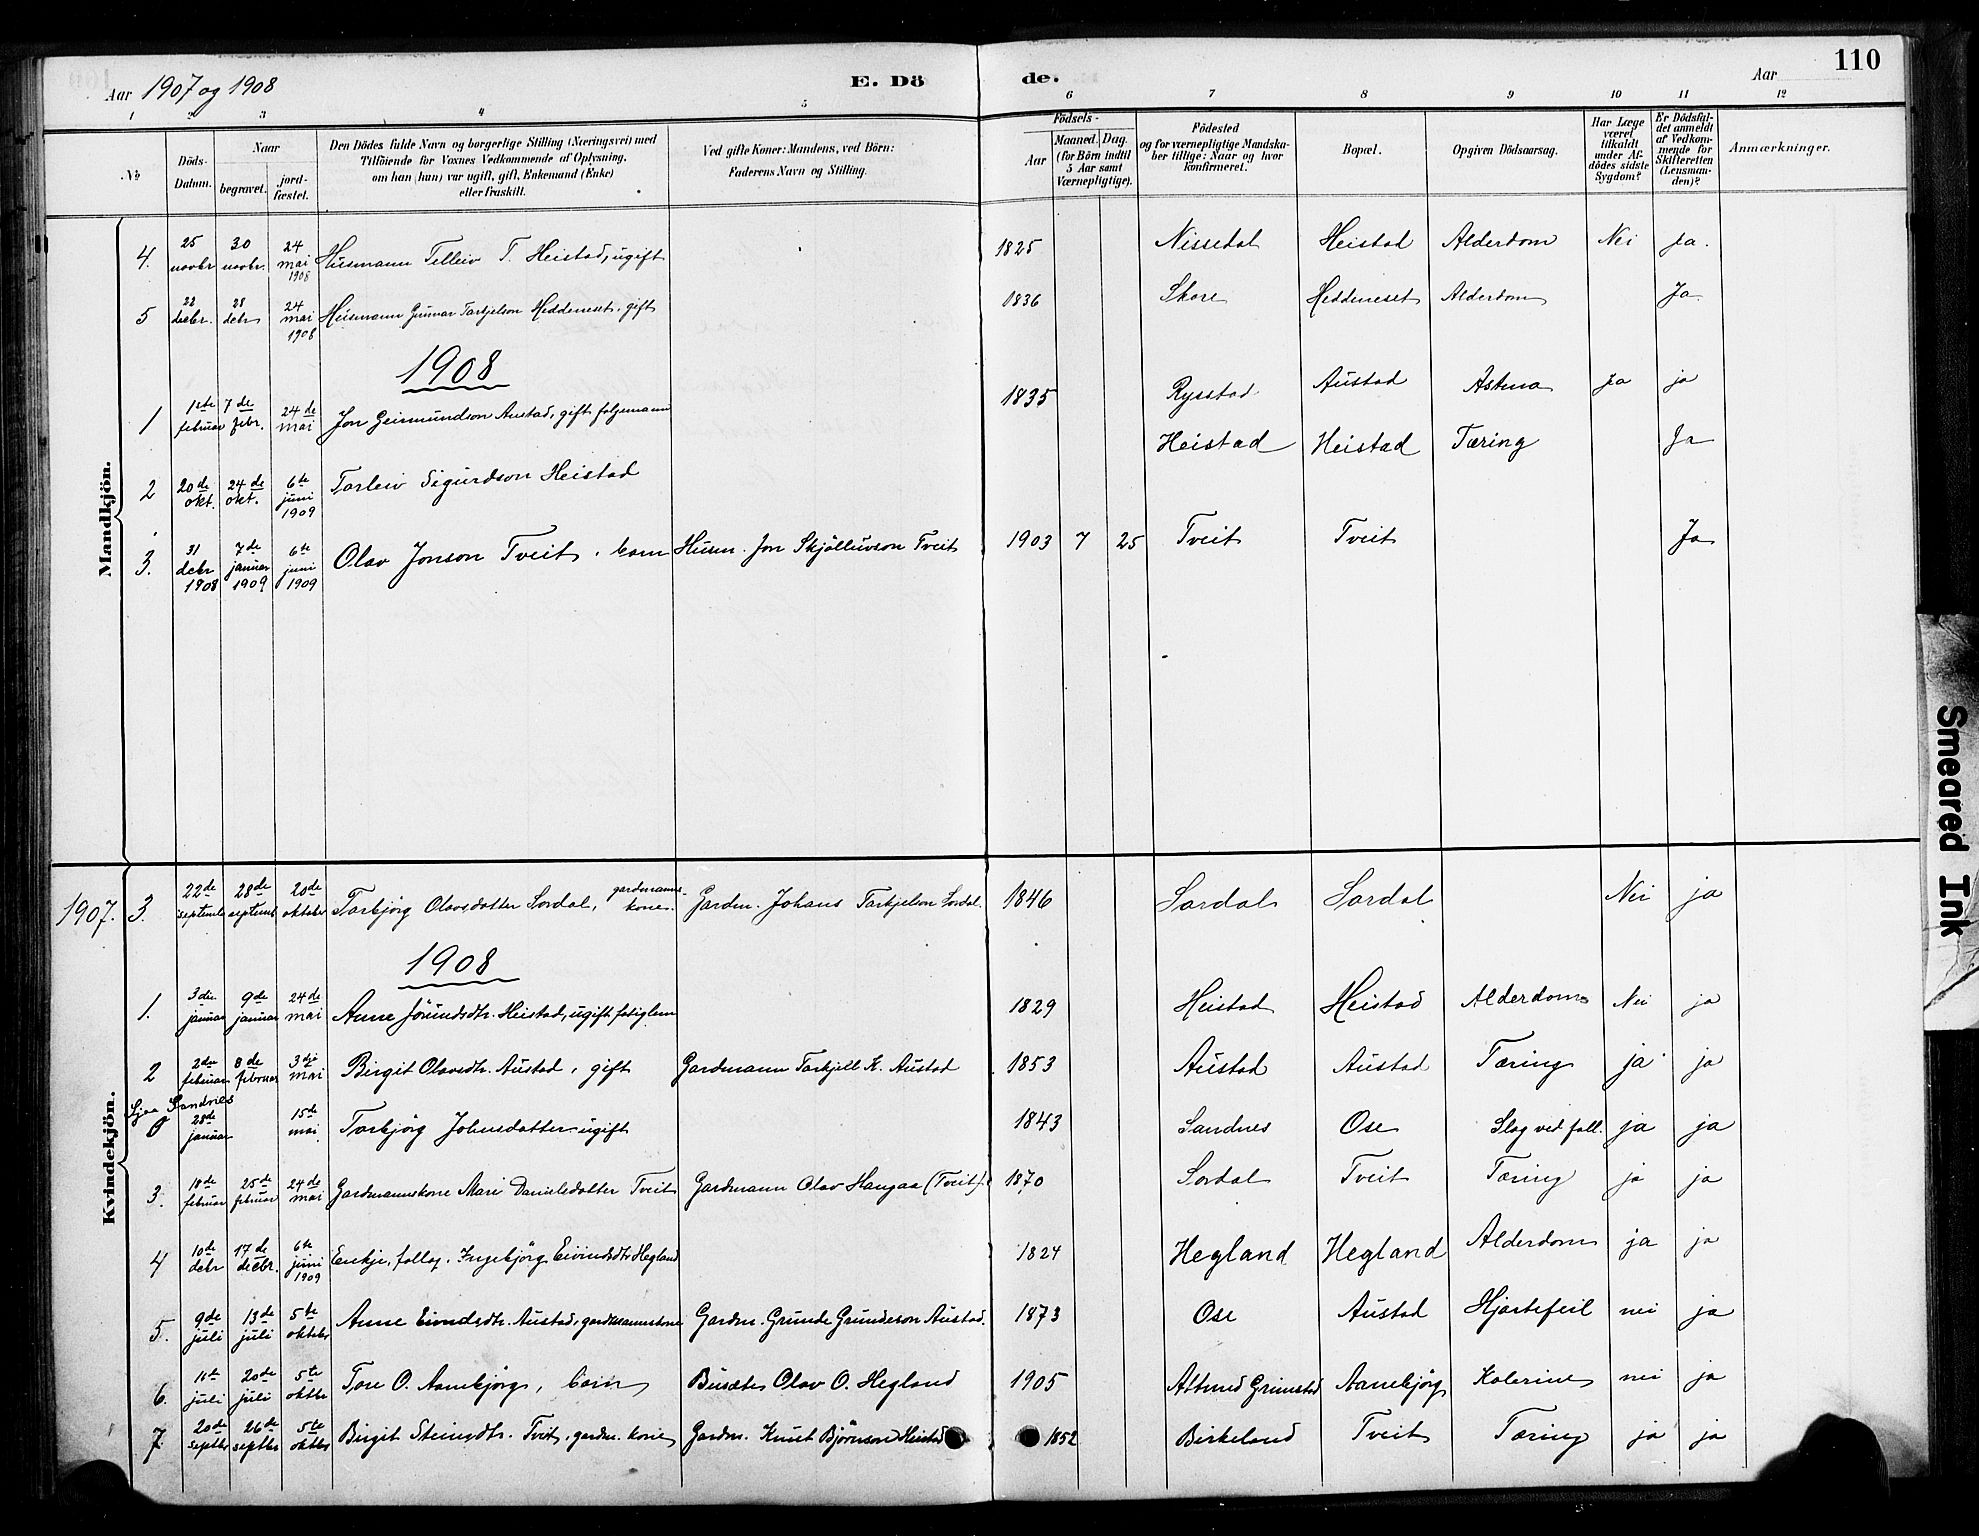 110
Aar 1907 og 1908
E. Dö de.
Aar
1 2 3 4 5 6 7 8 9 10 11 12
No
Döds-Datum.
Naar
begravet.
jord-fæstet.
Den Dödes fulde Navn og borgerlige Stilling (Næringsvei) med
Tilföiende for Voxnes Vedkommende af Oplysning,
om han (hun) var ugift, gift, Enkemand (Enke)
eller fraskilt.
Ved gifte Koner: Mandens, ved Börn:
Faderens Navn og Stilling.
Födsels-
Aar
Maaned. Dag.
(for Börn indtil
5 Aar samt
Værnepligtige).
Födested
og for værnepligtige Mandska-
ber tillige: Naar og hvor
konfirmeret.
Bopæl.
Opgiven Dödsaarsag.
Har Læge
været
tilkaldt
under Af-
dödes sidste
Sygdom?
Er Dödsfal-
det anmeldt
af Vedkom-
mende for
Skifteretten
(Lensman-
den)?
Anmærkninger.
Mandkjön.
4. 25 novbr 30 novbr. 24 mai 1908 Husmann Telleiv T. Heistad, ugift 1825 Nissedal Heistad Alderdom Nei Ja.
5 22 decbr. 28 debr 24 mai 1908 Husmann Gunnar Tarkjelson Heddeneset, gift 1836 Skore Heddeneset Alderdom Ja
1908
1 1ste februar 7de febr. 24de mai Jon Geirmundson Austad, gift folgemann 1835 Rysstad Austad Astma Ja ja
2 20de okt. 24de okt. 6te juni 1909 Torleiv Sigurdson Heistad Heistad Heistad Tæring Ja
3. 31 debr 1908 7de januar 1909 6te juni 1909 Olav Jonson Tveit, barn Husm. Jon Skjölluvson Tveit 1903 7 25 Tveit Tveit Ja
Kvindekjön.
1907. 3. 22de septembr 28de septemb 20de oktober Torbjörg Olavsdotter Sordal, gardmanns-kone. Gardm. Johans Tarkjelson Sordal. 1846 Sordal Sordal Nei ja
1908
1. 3die januar 9de januar 24de mai Anne Jörundsdtr. Heistad, ugift fatiglem 1829 Heistad Heistad Alderdom Nei ja
2 2den februar 8de februar 3dje mai Birgit Olavsdtr. Austad, gift Gardmann Tarkjell K. Austad 1853 Austad Austad Tæring ja ja
Sjaa Sandnes
0 28de januar 15de mai Torbjörg Johnsdotter ugift 1843 Sandnes Ose Slag ved fall. ja ja
3. 18de februar 25de februar 24de mai Gardmannskone Mari Danielsdotter Tveit Gardmann Olav Haugaa (Tveit). 1870 Sordal Tveit Tæring ja ja
4 10de debr 17de decbr. 6te juni 1909 Enkje, Ingebjörg Eivindsdtr Hegland 1824 Hegland Hegland Alderdom ja ja
5. 9de juli 13de juli 5te oktober Anne Eivindsdtr. Austad, gardmannskone Gardm. Grunde Grundeson Austad. 1873 Ose Austad Hjartefeil nei ja
6. juli 20de juli 5te oktbr Tore O. Aamebjörg, barn Busæter Olav O. Hegland 1905 Grimstad Aanebjörg Kolerine nei ja
7. 20de septbr 26de septbr 5te oktbr Birgit Tveit, gardm. kone Gardm. Knut Björnson Heistad 1852 Birkeland Tveit Tæring ja ja
Smeared Ink